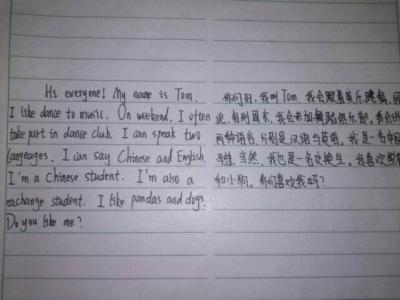 Hi everyone! My name is Tom.
I like dance to music. On weekend, I often
take part in dance club. I can speak two
langeages. I can say Chinese and English.
I'm a Chinese student. I'm also a
exchange student. I like pandas and dogs.
Do you like me?
你们好,我叫Tom.我会跟着音乐跳舞,因
此,每到周末,我会参加舞蹈俱乐部,我会讲
两种语言,分别是汉语与英语,我是一名中国
学生,当然,我也是一名交换生,我喜欢熊猫
和小狗。你们喜欢我吗?